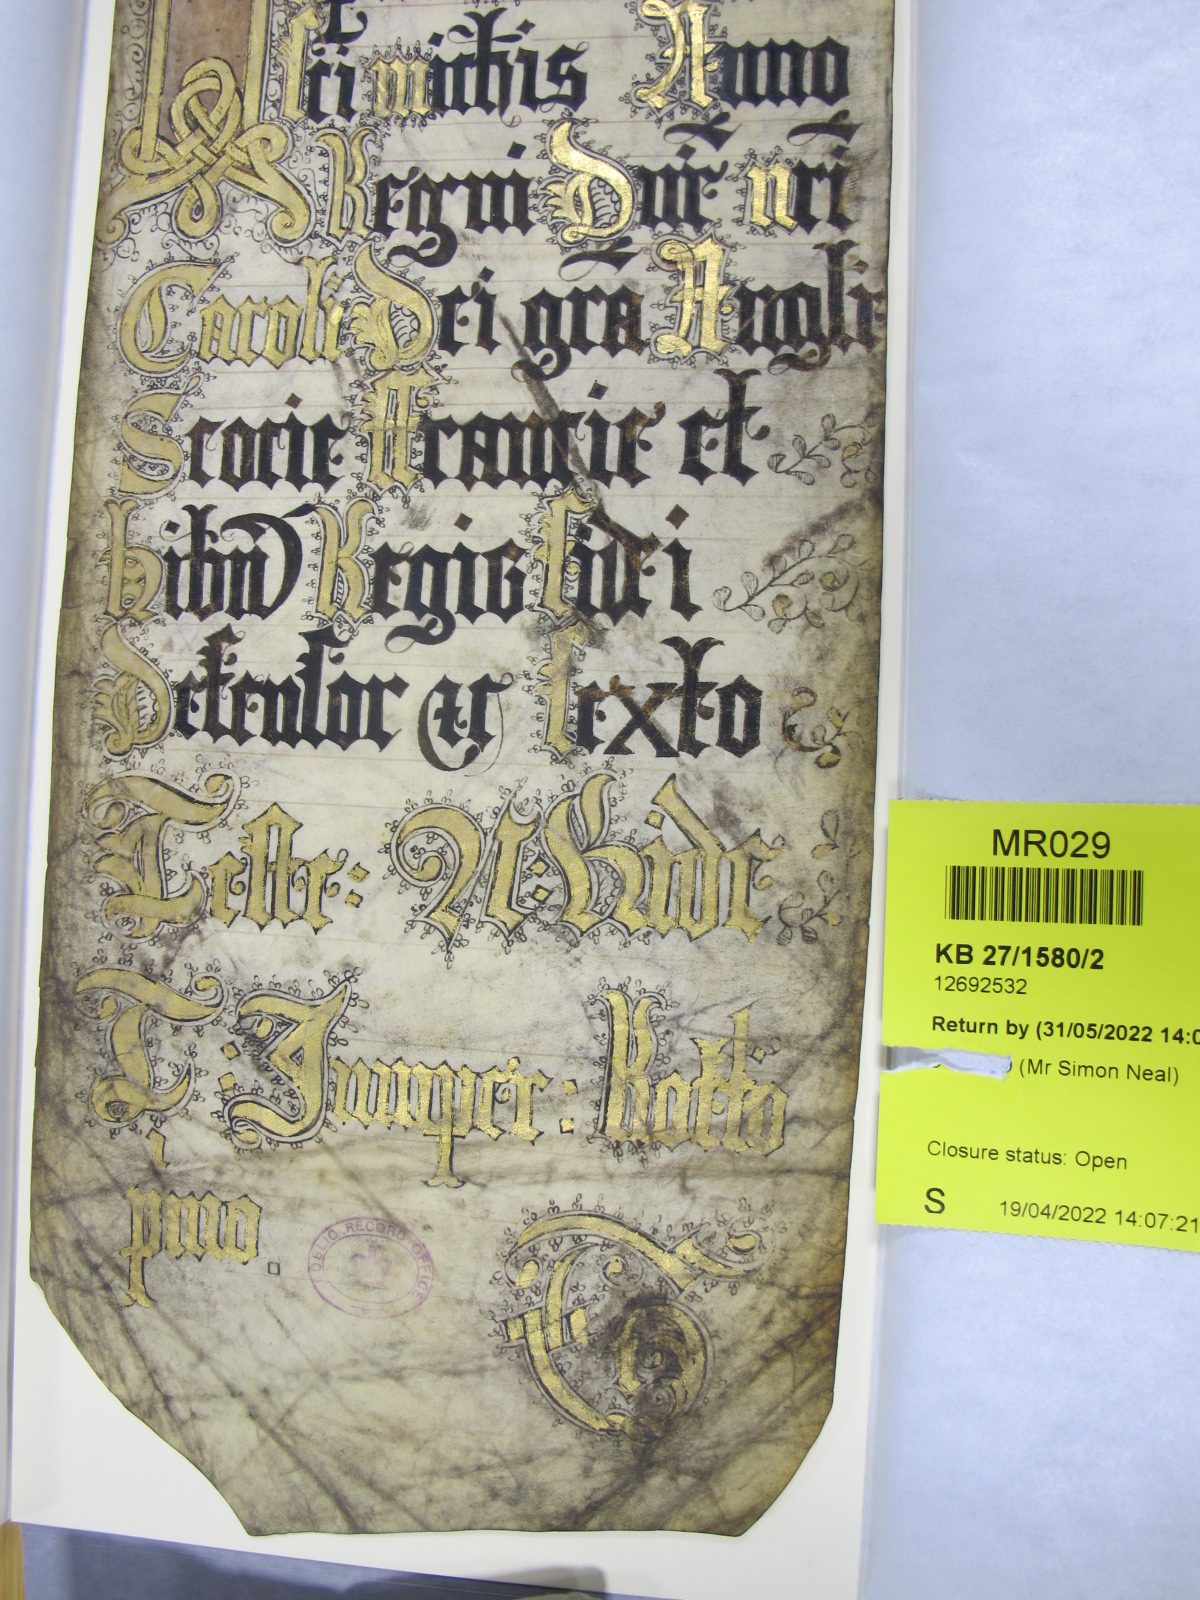 sci mich̃is Anno
Regni Dñi nr̃i
Caroli Dei gr̃a Anglie
Scocie Francie et
hib̃n Regis fidei
Defensor &c sexto
Teste: N: Hide
T: Jumper: Rotto
pmo
PUBLIC RECORD OFFICE
MR029
KB 27/1580/2
12692532
Return by (31/05/2022 14:0
(Mr Simon Neal)
Closure status: Open
S 19/04/2022 14:07:21